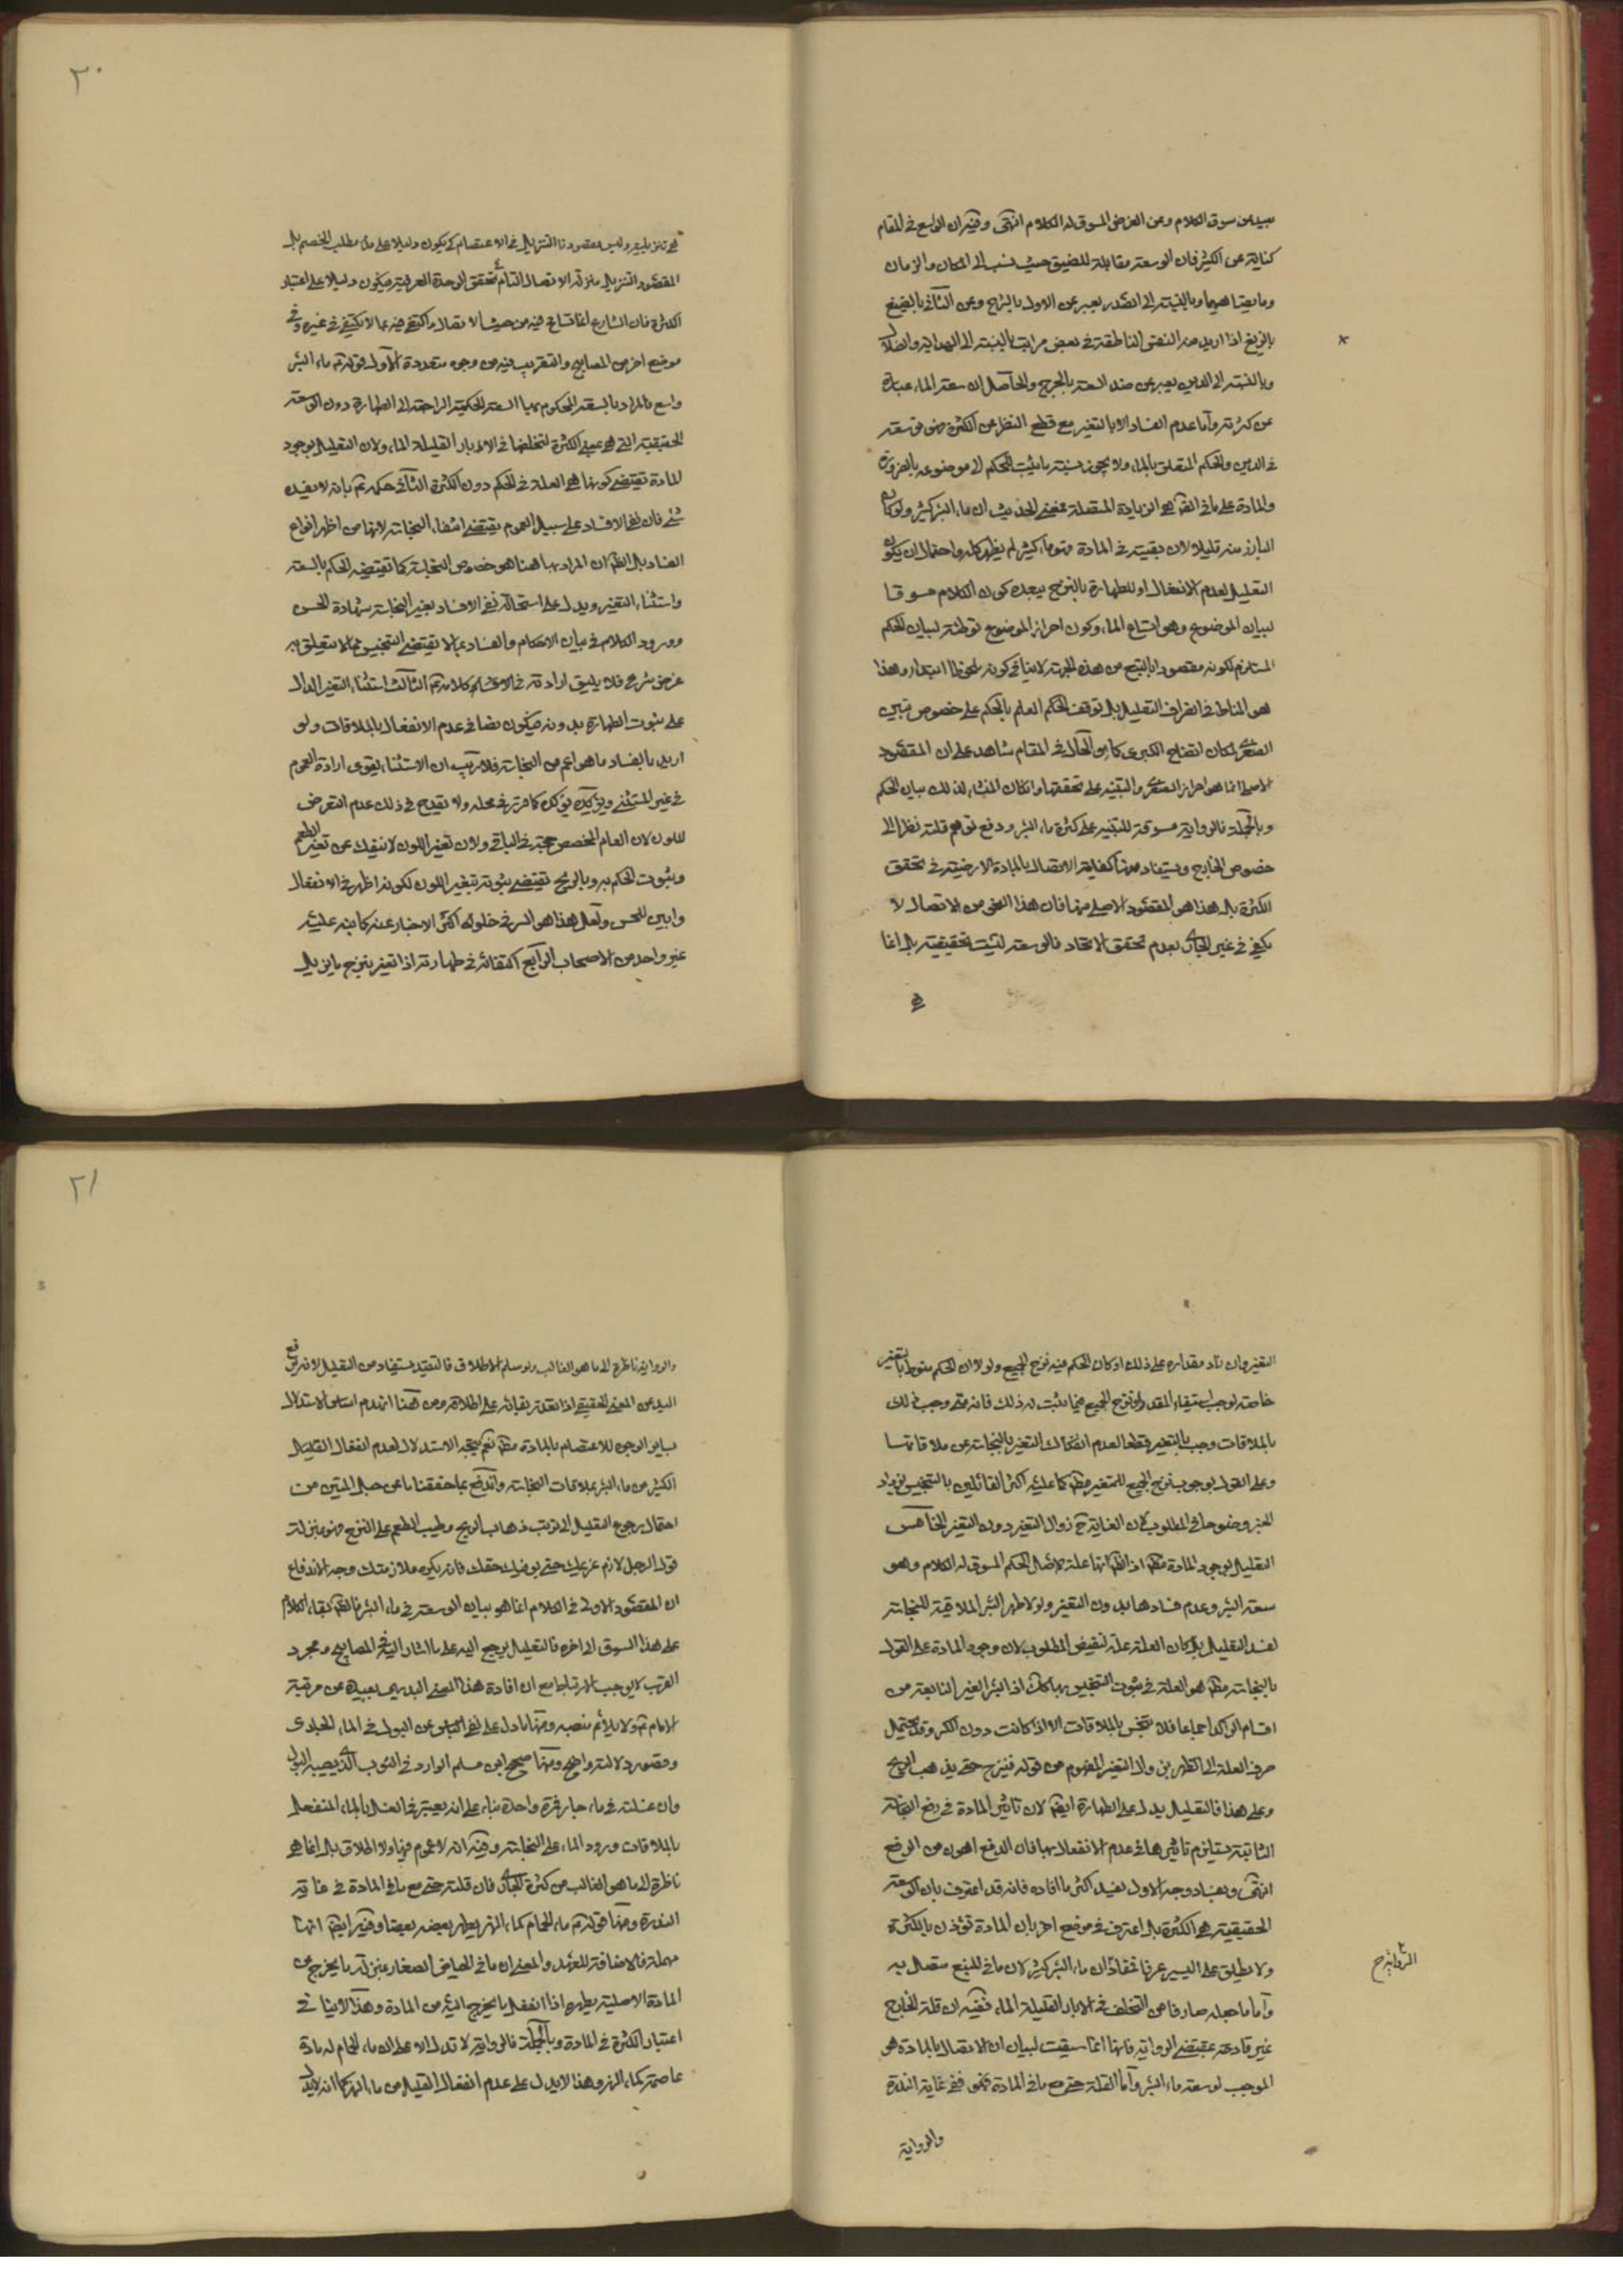 بعيد عن سوق الكلام وعن الغرض المسوق له الكلام انتهى وفيه ان الواسع في المقام
كناية عن الكثير فان الوسعة مقابلة للضيق حيث نسب الى المكان والزمان
وما يضاهيهما وبالنسبة الى الصدر يعبر عن الاول بالشرح وعن الثاني بالضيق
بالزيغ اذا اريد منه النفس الناطقة في بعض مراتبها بالنسبة الى الهداية والضلال
وبالنسبة الى الدين يعبر عن ضد السعة بالحرج والحاصل ان سعة الماء عبارة
عن كثرته واما عدم الفساد الا بالتغير مع قطع النظر عن الكثرة فهو توسعة
في الدين والحكم المتعلق بالماء ولا يجوز نسبة ما يثبت للحكم الى موضوعه بالضرورة
والمادة على ما في القهر هو الزيادة المتصلة فمعنى الحديث ان ماء البئر كثير ولو كان
البارز منه قليلا لان بقيته في المادة فهو ماء كثير لم يظهر كله واحتمال ان يكون
التعليل لعدم الانفعال او للطهارة بالنزح يبعده كون الكلام مسوقا
لبيان الموضوع وهو اتساع الماء وكون احراز الموضوع توطئة لبيان الحكم
المستلزم لكونه مقصودا بالتبع من هذه الجهة لا ينافي كونه ملحوظا ابتداء وهذا
هو المناط في انصراف التعليل بل توقف الحكم العلم بالحكم على خصوص تبين
الصغرى لمكان اتضاح الكبرى كما هو الحال في المقام شاهد على ان المقصود
الاصلي انما هو احراز الصغرى والتنبيه على تحققها وان كان المنشاء لذلك بيان الحكم
وبالجملة فالرواية مسوقة للتنبيه على كثرة ماء البئر ودفع توهم قلته نظرا الى
خصوص الخارج ويستفاد منها كفاية الاتصال بالمادة الارضية في تحقق
الكثرة بل هذا هو المقصود الاصلي منها فان هذا النحو من الاتصال لا
يكفي في غير الجاري لعدم تحقق الاتحاد فالوسعة ليست تحقيقية بل انما
هي
٢٠
هي تنزيلية وليس مقصودنا التنزيل في الاعتصام كي يكون دليلا على مطلب الخصم بل
المقصود التنزيل منزلة الاتصال التام لتحقق الوحدة العرفية فيكون دليلا على اعتبار
الكثرة فان الشارع انما تسامح فيه من حيث الاتصال واكتفى فيه بما لا يكتفى في غيره وفي
موضع اخر من المصابيح والتقريب فيه من وجوه متعددة الاول قوله ع ماء البئر
واسع فالمراد بالسعة المحكوم بها السعة الحكمية الراجعة الى الطهارة دون الوسعة
الحقيقية التي هي بمعنى الكثرة لتخلفها في الابار القليلة الماء ولان التعليل بوجود
المادة تقتضي كونها هي العلة في الحكم دون الكثرة الثاني حكمه ع بانه لا يفسده
شئ فان نفي الافساد على سبيل العموم يقتضي انتفاء النجاسة لانها من اظهر انواع
الفساد بل الظ ان المراد بها هنا هو خصوص النجاسة كما تقتضيه الحكم بالسعة
واستثناء التغير ويدل على استحالة نفي الافساد بغير النجاسة شهادة الحس
وورود الكلام في بيان الاحكام والفساد بما لا يقتضي التنجيس مما لا يتعلق به
غرض شرعي فلا يليق ارادته في كلامه ع الثالث استثناء التغير الدال
على ثبوت الطهارة بدونه فيكون نصا في عدم الانفعال بالملاقات ولو
اريد بالفساد ما هو اعم من النجاسة فلا ريب ان الاستثناء يقوى ارادة العموم
في غير المستثنى ويؤكده تؤكد كما قرر في محله ولا يقدح في ذلك عدم التعرض
للون لان العام المخصص حجة في الباقي ولان تغير اللون لا ينفك عن تغير الطعم
وثبوت الحكم به وبالريح تقتضي ثبوته بتغير اللون لكونه اظهر في الانفعال
وابين للحس ولعل هذا هو السر في خلو اكثر الاخبار عنه كما نبه عليه
غير واحد من الاصحاب الرابع اكتفائه في طهارته اذا تغير بنزح ما يزيل
التغير وان زاد مقداره على ذلك او كان الحكم فيه نزح الجميع ولولا ان الحكم منوط بالتغير
خاصة لوجب استيفاء المقدر او نزح الجميع فيما يثبت له ذلك فانه متى وجب ذلك
بالملاقات وجب بالتغير قطعا لعدم انفكاك التغير بالنجاسة عن ملاقاتها
وعلى القول بوجوب نزح الجميع للمتغير مط كما عليه اكثر القائلين بالتنجيس يزداد
الخبر وضوحا في المطلوب لان الغاية ح زوال التغير دون التغير الخامس
التعليل بوجود المادة مط اذ الظ انها علة لاصل الحكم المسوق له الكلام وهو
سعة البئر وعدم فسادها بدون التغير ولولا طهر البئر الملاقية للنجاسة
لفسد التعليل بل كان العلة علة لنقيض المطلوب لان وجود المادة على القول
بالنجاسة مط هو العلة في ثبوت التنجيس بها كذلك اذ البئر الغير النابعة من
اقسام الراكد اجماعا فلا تنجس بالملاقات الا اذا كانت دون الكر وقد يحتمل
صرف العلة الى الطهر بزوال التغير المفهوم من قوله فينزح حتى يذهب الريح
وعلى هذا فالتعليل يدل على الطهارة ايضا لان تاثير المادة في رفع النجاسة
الثابتة يستلزم تاثيرها في عدم الانفعال بها فان الدفع اهون من الرفع
انتهى وبفساد وجه الاول يفسد اكثر ما افاده فانه قد اعترف بان الوسعة
الحقيقية هي الكثرة بل اعترف في موضع اخر بان المادة تؤذن بالكثرة
ولا يطلق على اليسير عرفا فمفاد ان ماء البئر كثير لان ما في المنبع متصل به
واما ما جعله صارفا من التخلف في الابار القليلة الماء ففيه ان قلة الخارج
غير قادحة بمقتضى الرواية فانها انما سيقت لبيان ان الاتصال بالمادة هو
الموجب لوسعة ماء البئر واما القلة حتى مع ما في المادة فهو في غاية الندرة
والرواية
٢١
والرواية ناظرة الى ما هو الغالب ولو سلم الاطلاق فالتقييد يستفاد من التعليل لانه
اليد عن المعنى الحقيقي اذا تعذر بقائه على اطلاقه ومن هنا انهدم اساس الاستدلال
بساير الوجوه للاعتصام بالمادة مط نعم يتجه الاستدلال لعدم انفعال القليل
الكثير من ماء البئر بملاقات النجاسة واندفع بما حققنا ما عن حبل المتين من
احتمال رجوع التعليل الى ترتب ذهاب الريح وطيب الطعم على النزح فهو بمنزلة
قول الرجل لازم غريمك حتى يوفيك حقك فانه يكره ملازمتك وجه الاندفاع
ان المقصود الاولي في الكلام انما هو بيان الوسعة في ماء البئر فالظ بقاء الكلام
على هذا السوق الى اخره فالتعليل يرجع اليه على ما اشار اليه في المصابيح ومجرد
القرب لا يوجب الارتباط مع ان افادة هذا المعنى البديهي بعيدة عن مرتبة
الامام ع ولا يلائم منصبه ومنها ما دل على نفي الباس عن البول في الماء الجاري
وقصور دلالته واضح ومنها صحيح ابن مسلم الوارد في الثوب الذي يصيبه البول
وان غسلته في ماء جار فمرة واحدة بناء على انه يعتبر في الغسل بالماء المنفعل
بالملاقات ورود الماء على النجاسة وفيه انه لا عموم فيها ولا اطلاق بل انما هي
ناظرة الى ما هو الغالب من كثرة الجاري فان قلته حتى مع ما في المادة في غاية
الندرة ومنها قوله ع ماء الحمام كماء النهر يطهر بعضه بعضا وفيه ايضا انها
مهملة فالاضافة للعهد والمعنى ان ما في الحياض الصغار بمنزلة ما يخرج من
المادة الاصلية يطهره اذا انفعل ما يخرج اليه من المادة وهذا لا ينافي
اعتبار الكثرة في المادة وبالجملة فالرواية لا تدل الا على ان ماء الحمام له مادة
عاصمة كماء النهر وهذا لا يدل على عدم انفعال القليل من ماء النهر كما انه لا يدل